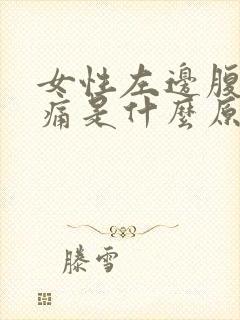 女性左邊腹
痛是什麼原
滕雪